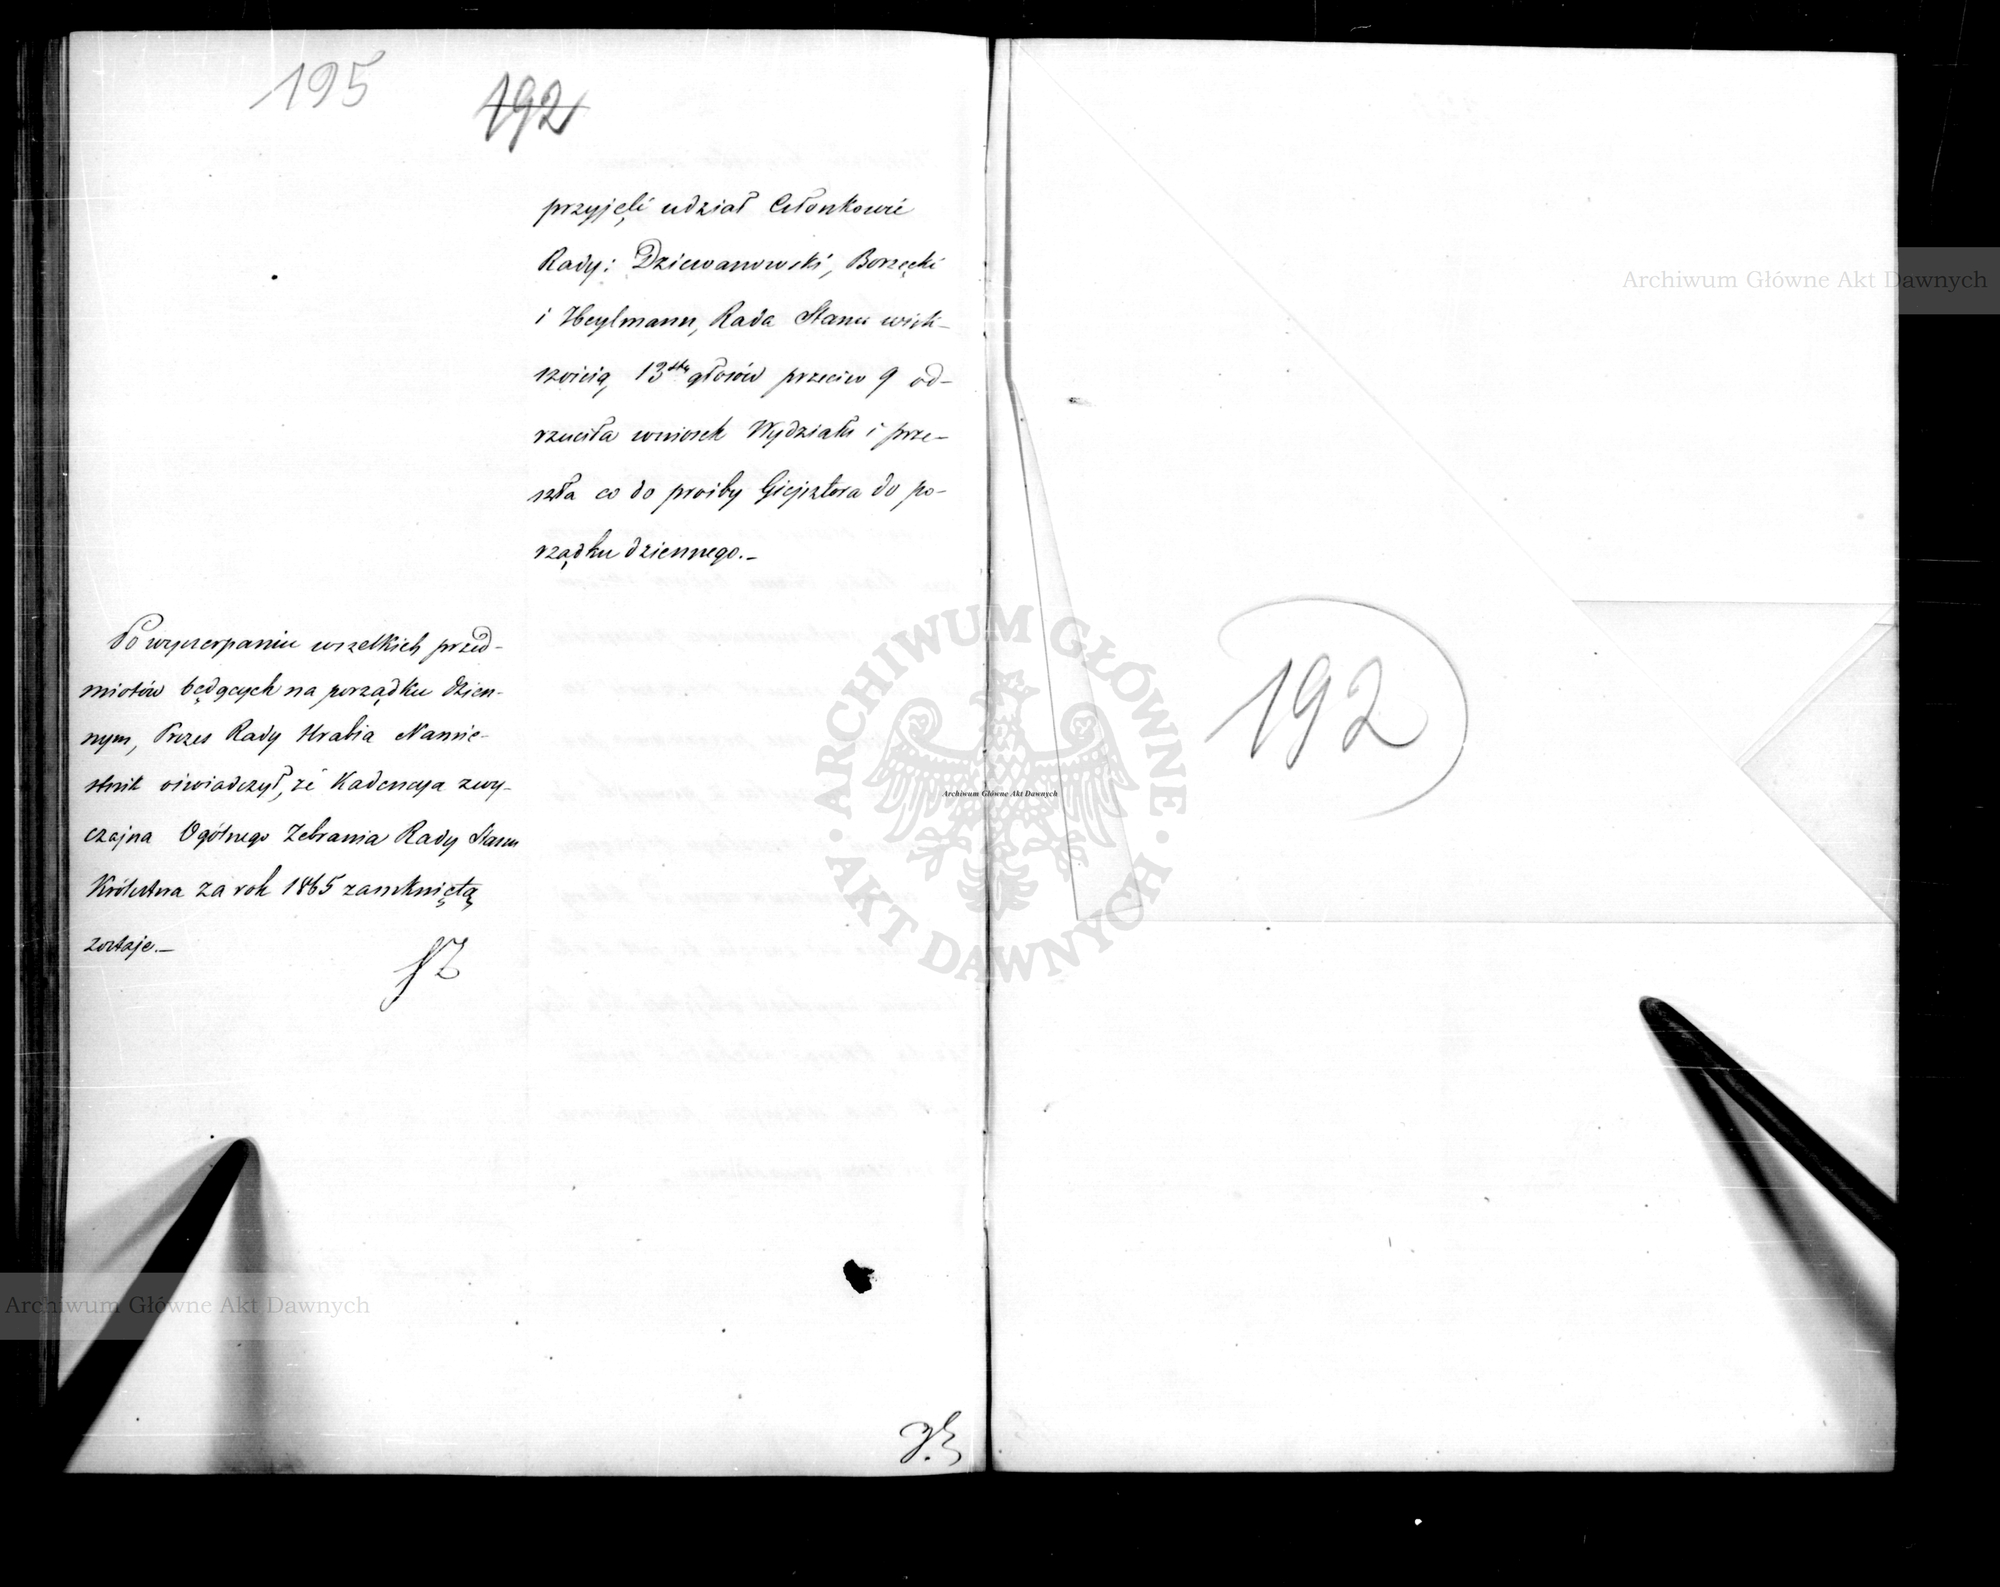 195
192
przyjęli udział Członkowie
Rady: Dziewanowski, Borzęcki
i Heylmann, Rada Stanu więk-
szością 13stu głosów przeciw 9 od-
rzuciła wniosek Wydziału i prze-
szła co do prośby Giejsztora do po-
rządku dziennego.—
Po wyczerpaniu wszelkich przed-
miotów będących na porządku dzien-
nym, Prezes Rady Hrabia Namie-
stnik oświadczył, że Kadencya zwy-
czajna Ogólnego Zebrania Rady Stanu
Królestwa za rok 1865 zamkniętą
zostaje.—
192
Archiwum Główne Akt Dawnych
Archiwum Główne Akt Dawnych
Archiwum Główne Akt Dawnych
ARCHIWUM GŁÓWNE AKT DAWNYCH